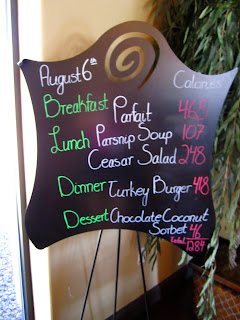 August 6th Calories
Breakfast Parfait 465
Lunch Parsnup Soup 107
Ceasar Salad 248
Dinner Turkey Burger 418
Dessert Chocolate Coconut
Sorbet 46
Total 1284